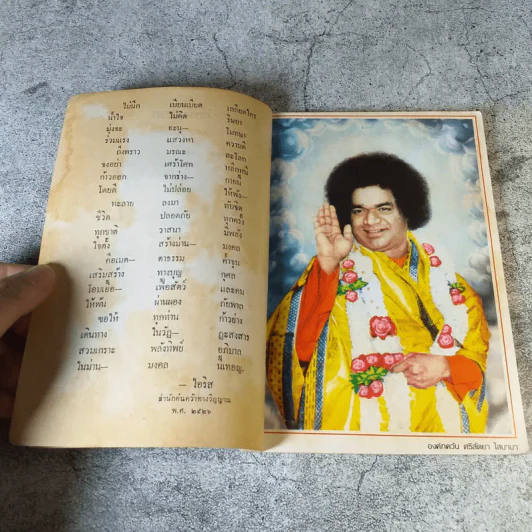 ไม่นึก เบียนเบียด เกลียดใคร
น้ำใจ ไม่คิด ริษยา
มุ่งจะ
ร่วมแรง แสวงหา ความดี
ถึงคราว มรณะ ละโลก
จงอย่า เศร้าโศก
ก้าวออก จากร่าง—
โดยดี ไม่ปล่อย ให้พัง—
ทะลาย ลงมา ทับชีวิต
ชีวิต ปลอดภัย ทุกครั้ง
ทุกชาติ วาสนา มีพลัง
ใจตั้ง สร้างม่าน— มงคล
คือเมต— ตาธรรม ค้ำจุน
เสริมสร้าง ทางบุญ กุศล
โอบเอื้อ เพื่อสัตว์ และคน
ให้พ้น ผ่านผอง ภัยพาล
ขอให้ ทุกท่าน ก้าวย่าง
เดินทาง ในวัฏ— ฏะสงสาร
สวมเกราะ พลังทิพย์ อภิบาล
ในม่าน— มงคล นูเทอญ.
— ไอริส
สำนักค้นคว้าทางวิญญาณ
พ.ศ. ๒๕๒๖
องค์ภควัน ศรีสัตยา ไสบาบา